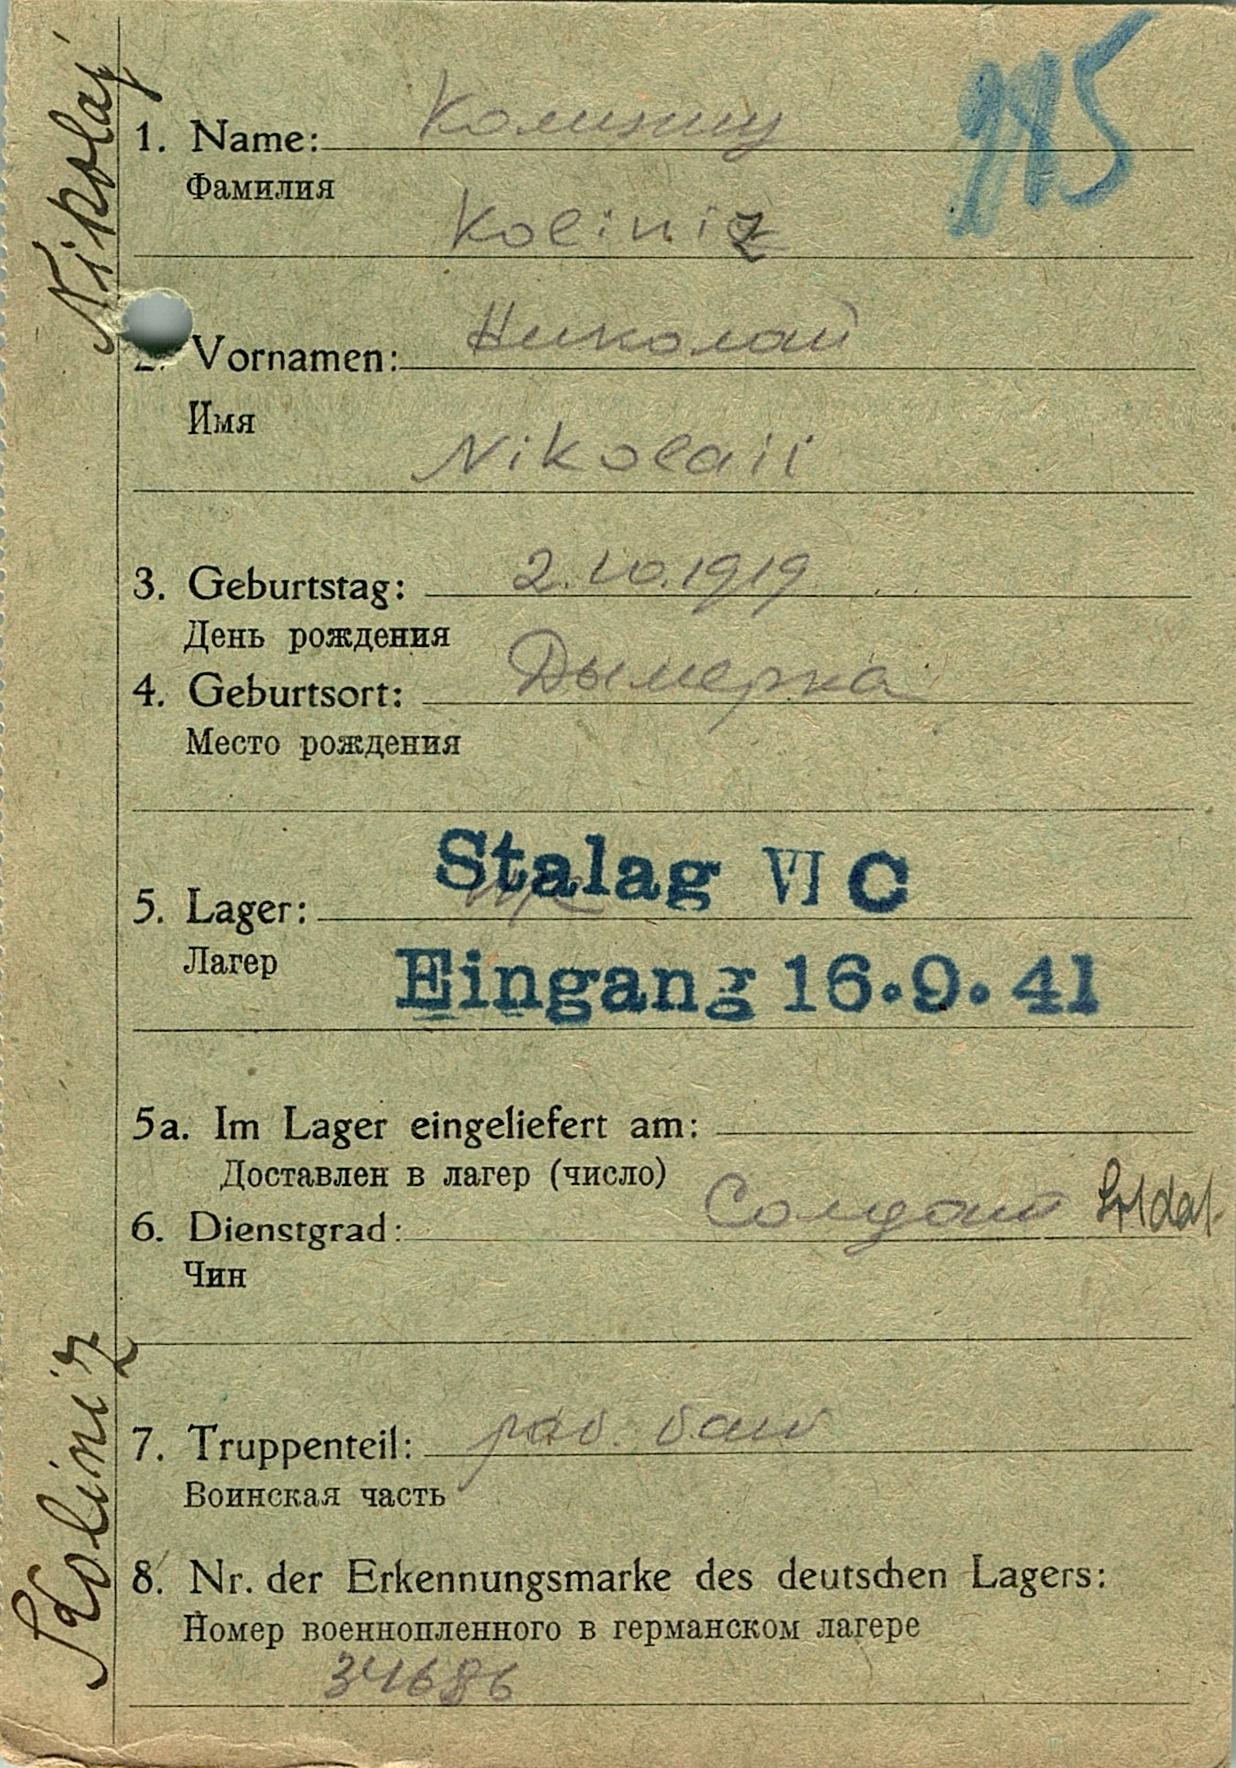 Nikolaj
Koliniz
985
1. Name: Колиниц
Фамилия
Koliniz
2. Vornamen: Николай
Имя
Nikolaii
3. Geburtstag: 2.10.1919
День рождения
4. Geburtsort: Дымерка
Место рождения
Stalag VI C
5. Lager:
Лагер
Eingang 16.9.41
5a. Im Lager eingeliefert am:
Доставлен в лагер (число)
6. Dienstgrad: Солдат Soldat
Чин
7. Truppenteil: раб. бат
Воинская часть
8. Nr. der Erkennungsmarke des deutschen Lagers:
Номер военнопленного в германском лагере
34686